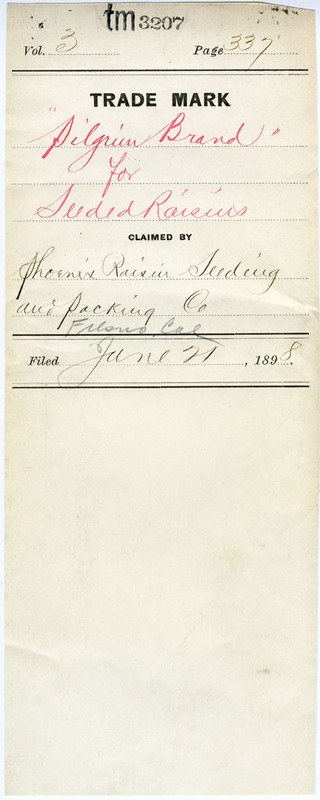 tm3207
Vol. 3 Page 337
TRADE MARK
"Pilgrim Brand"
for
Seeded Raisins
CLAIMED BY
Phoenix Raisin Seeding
and Packing Co
Fresno, Cal
Filed June 21, 1898.